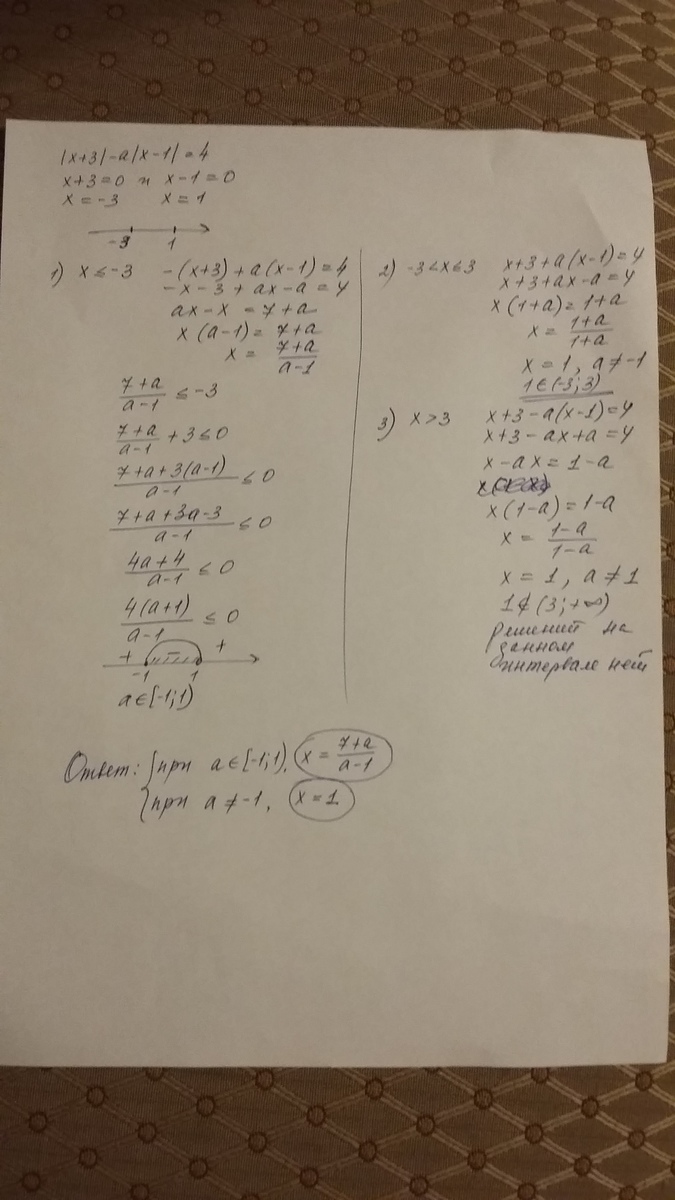 |x+3|-a|x-1|=4
x+3=0 и x-1=0
x=-3 x=1
-3 1
1) x≤-3 -(x+3)+a(x-1)=4
-x-3+ax-a=4
ax-x=7+a
x(a-1)=7+a
x=\frac{7+a}{a-1}
\frac{7+a}{a-1}≤-3
\frac{7+a}{a-1}+3≤0
\frac{7+a+3(a-1)}{a-1}≤0
\frac{7+a+3a-3}{a-1}≤0
\frac{4a+4}{a-1}≤0
\frac{4(a+1)}{a-1}≤0
+ - +
-1 1
a∈[-1;1)
2) -3<x≤3 x+3+a(x-1)=4
x+3+ax-a=4
x(1+a)=1+a
x=\frac{1+a}{1+a}
x=1, a≠-1
1∈(-3;3)
3) x>3 x+3-a(x-1)=4
x+3-ax+a=4
x-ax=1-a
x(1-a)=1-a
x=\frac{1-a}{1-a}
x=1, a≠1
1∉(3;+∞)
решений на
данном
интервале нет
Ответ: {при a∈[-1;1), x=\frac{7+a}{a-1}
{при a≠-1, x=1